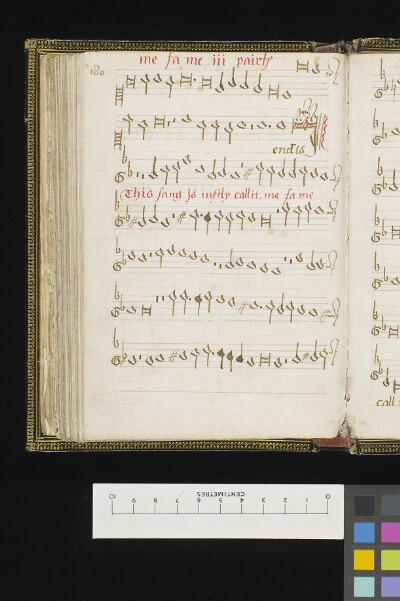 me fa me iii pairts
180
endis
This sang Is iustly callit, me fa me
call
CENTIMETRES
10 9 8 7 6 5 4 3 2 1 0